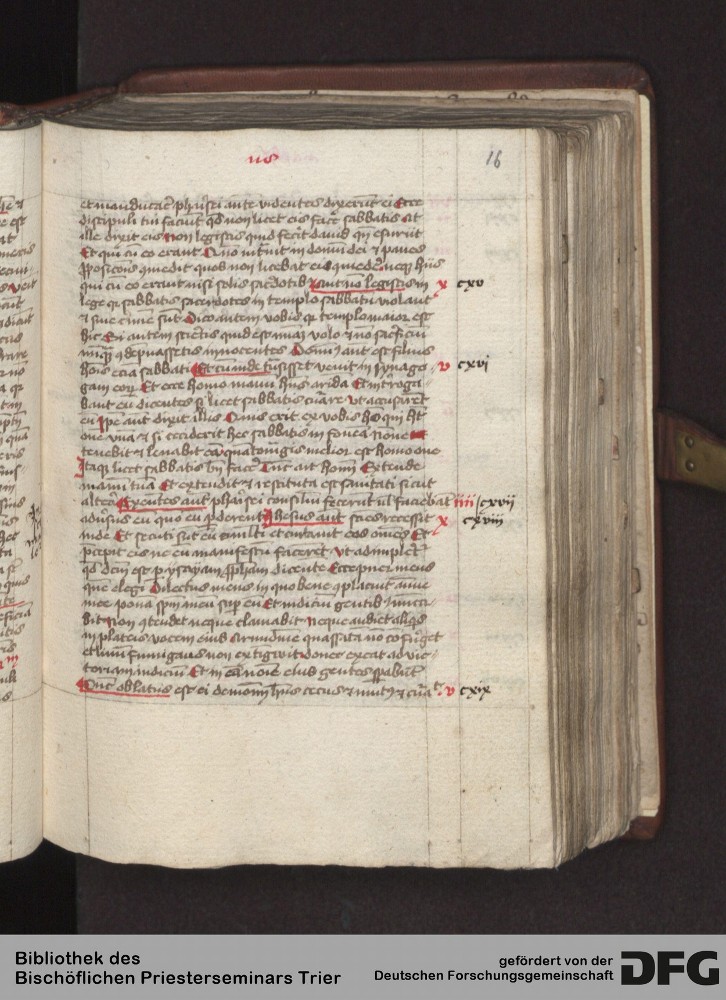 us
16
et manducare pharisei autem videntes dixerunt ei Ecce
discipuli tui faciunt quod non licet eis facere sabbatis At
ille dixit eis Non legistis quid fecit dauid quando esuriit
Et qui cum eo erant Quomodo intrauit in domum dei et panes
propositionis comedit quos non licebat ei comedere neque hiis
qui cum eo erant nisi solis sacerdotibus Aut non legistis in v cxv
lege quia sabbatis sacerdotes in templo sabbatum violant
et sine crimine sunt Dico autem vobis quia templo maior est
hic Si autem sciretis quid est misericordiam volo et non sacrificium
numquam condempnassetis innocentes Dominus autem est filius
hominis etiam sabbati Et cum inde transisset venit in synago v cxvi
gam eorum Et ecce homo manum habens arida Et interroga
bant eum dicentes si licet sabbatis curare vt accusarent
eum Ipse autem dixit illis Quis erit ex vobis homo qui habet
ouem vnam et si ceciderit hec sabbatis in foueam nonne
tenebit et leuabit eam quantomagis melior est homo oue
Itaque licet sabbatis bene facere Tunc ait homini Extende
manum tuam Et extendit et restituta est sanitati sicut
altera Exeuntes autem pharisei consilium fecerunt vel faciebant iiii cxvii
aduersus eum quomodo eum perderent Ihesus autem sciens recessit x cxviii
inde Et secuti sunt eum multi et curauit eos omnes Et
precepit eis ne eum manifestum facerent vt adimpleretur
quod dictum est per ysayam prophetam dicentem Ecce puer meus
quem elegi Dilectus meus in quo bene complacuit anime
mee ponam spiritum meum super eum Et iudicium gentibus nuncia
bit Non contendet neque clamabit neque audiet aliquis
in plateis vocem eius Arundinem quassatam non confringet
et linum fumigans non extinguet donec eiciat ad vic
toriam iudicium Et in nomine eius gentes sperabunt
Tunc oblatus est ei demonium habens cecus et mutus et cura v cxix
Bibliothek des
Bischöflichen Priesterseminars Trier
gefördert von der
Deutschen Forschungsgemeinschaft
DFG